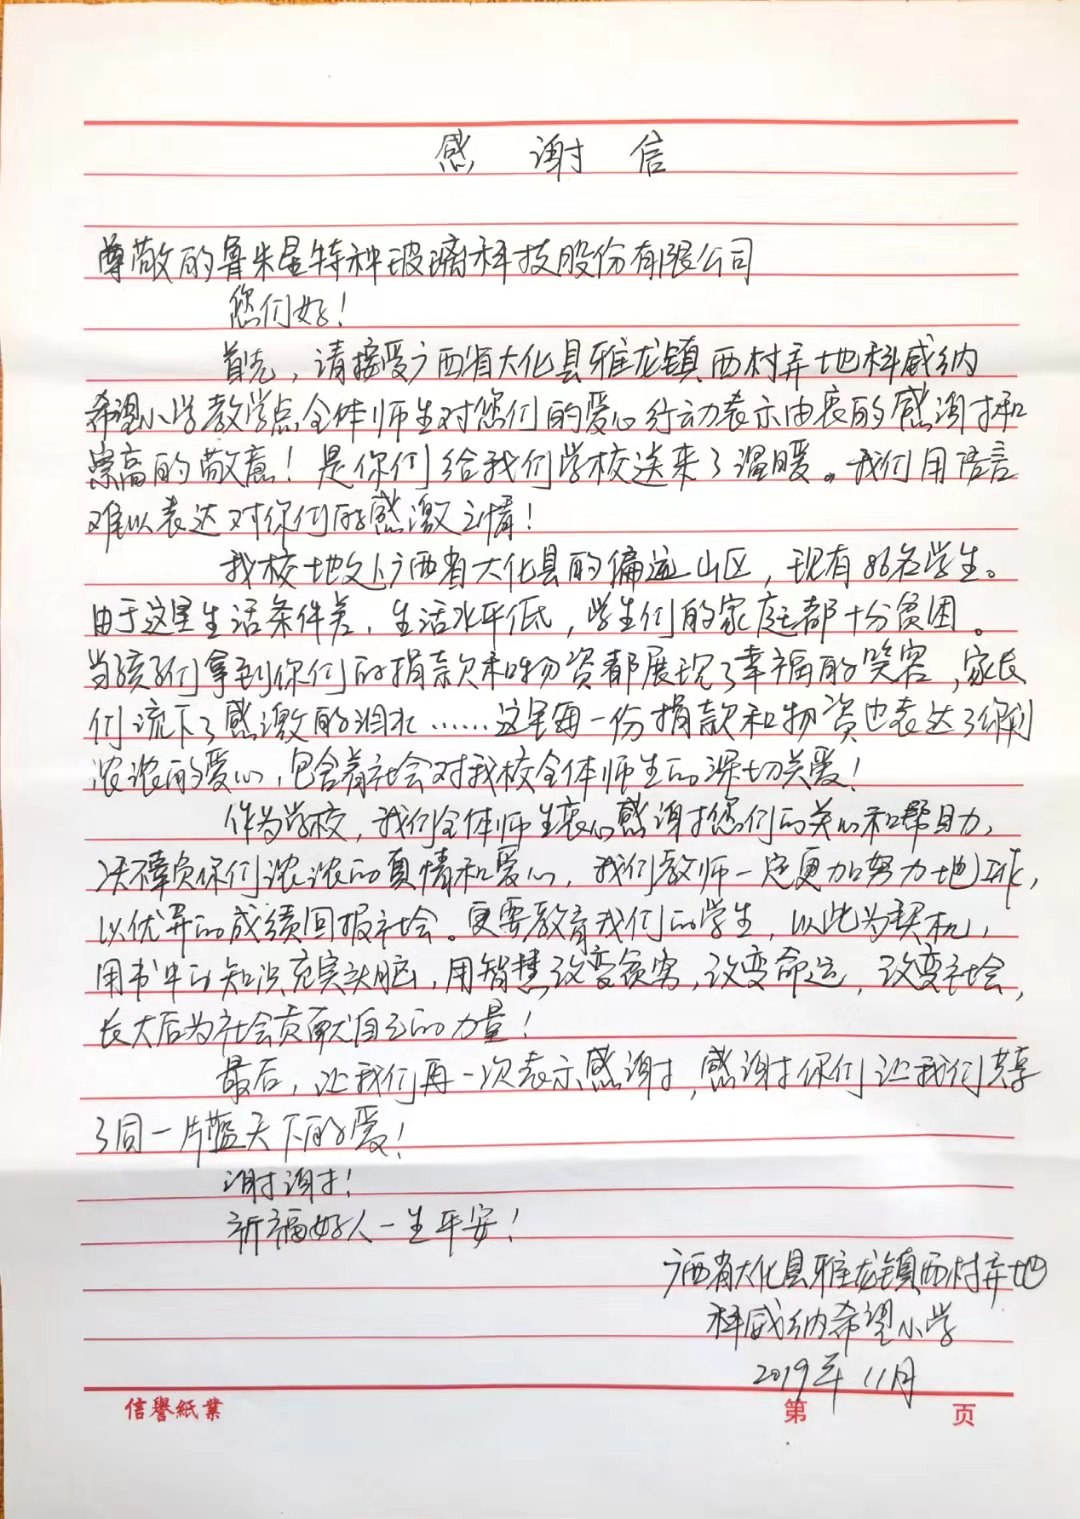 感 谢 信
尊敬的鲁朱星特种玻璃科技股份有限公司
您们好！
首先，请接受广西省大化县雅龙镇西村弄地科威纳
希望小学教学点全体师生对您们的爱心行动表示由衷的感谢和
崇高的敬意！是你们给我们学校送来了温暖。我们用语言
难以表达对你们的感激之情！
我校地处广西省大化县的偏远山区，现有86名学生。
由于这里生活条件差，生活水平低，学生们的家庭都十分贫困。
当孩子们拿到你们的捐款和物资都展现了幸福的笑容，家长
们流下了感激的泪水……这里每一份捐款和物资也表达了你们
浓浓的爱心，包含着社会对我校全体师生的深切关爱！
作为学校，我们全体师生衷心感谢您们的关心和帮助，
决不辜负你们浓浓的真情和爱心，我们教师一定更加努力地工作，
以优异的成绩回报社会。更要教育我们的学生，以此为契机，
用书中的知识充实头脑，用智慧改变贫穷，改变命运，改变社会，
长大后为社会贡献自己的力量！
最后，让我们再一次表示感谢，感谢你们让我们共享
了同一片蓝天下的爱！
谢谢！
祈福好人一生平安！
广西省大化县雅龙镇西村弄地
科威纳希望小学
2019年11月
信誉紙業 第 页